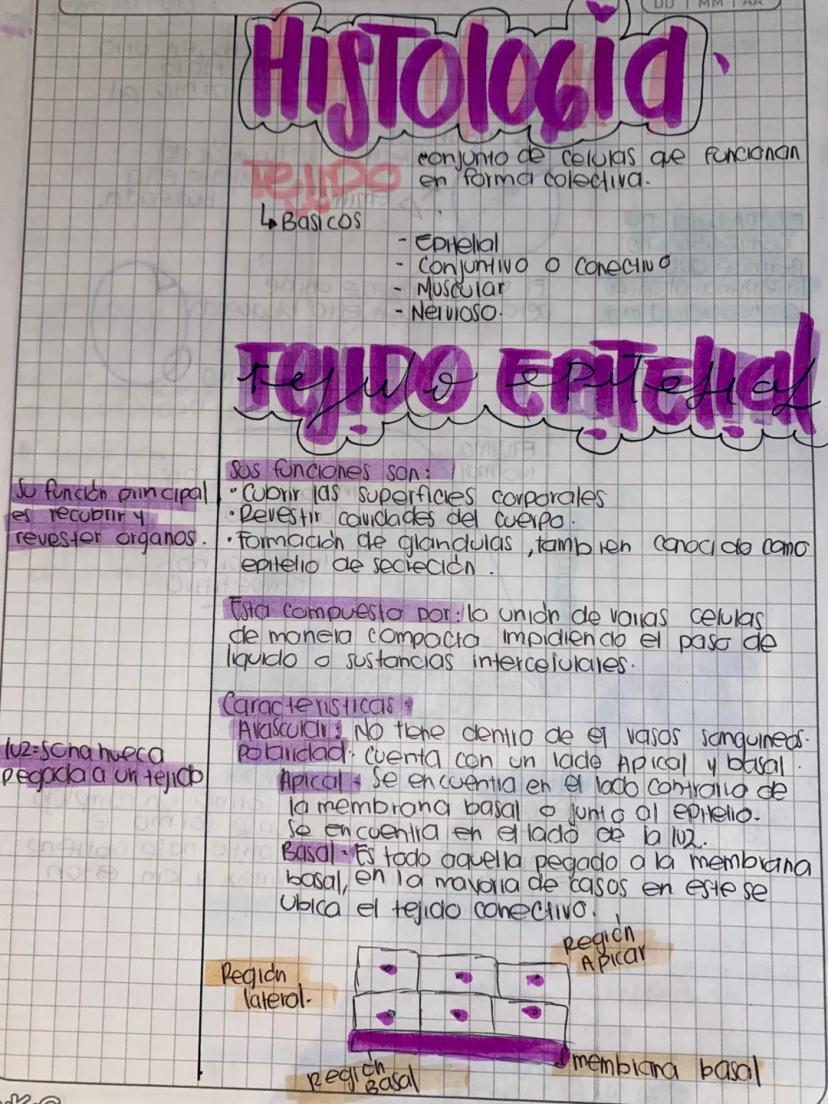 DD MM AA
HISTOLOGIA
TEJIDO
conjunto de celulas que funcionan
en forma colectiva.
↳ Basicos
- Epitelial
- Conjuntivo o conectivo
- Muscular
- Nervioso.
TEJIDO EPITELIAL
tejido epitelial
Sus funciones son:
· Cubrir las superficies corporales
· Revestir cavidades del cuerpo.
· Formación de glandulas, tambien conocido como
epitelio de secreción.
Su función principal
es recubrir y
revester organos.
Esta compuesto por: la unión de varias celulas
de manera compacta impidiendo el paso de
liquido o sustancias intercelulares.
Caracteristicas:
Avascular: No tiene dentro de el vasos sanguineos.
Polaridad: cuenta con un lado Apical y basal.
Apical: Se encuentra en el lado contrario de
la membrana basal o junto al epitelio.
Se encuentra en el lado de la luz.
Basal- Es todo aquella pegado a la membrana
basal, en la mayoria de casos en este se
ubica el tejido conectivo.
luz = zona hueca
pegada a un tejido
Región
Apicar
Región
lateral.
membrana basal
Región
Basal